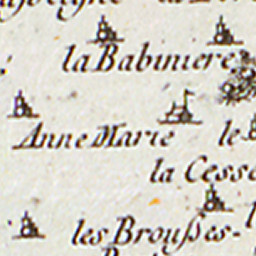 la Babiniere
Anne Marie le
la Cesse
les Brousses